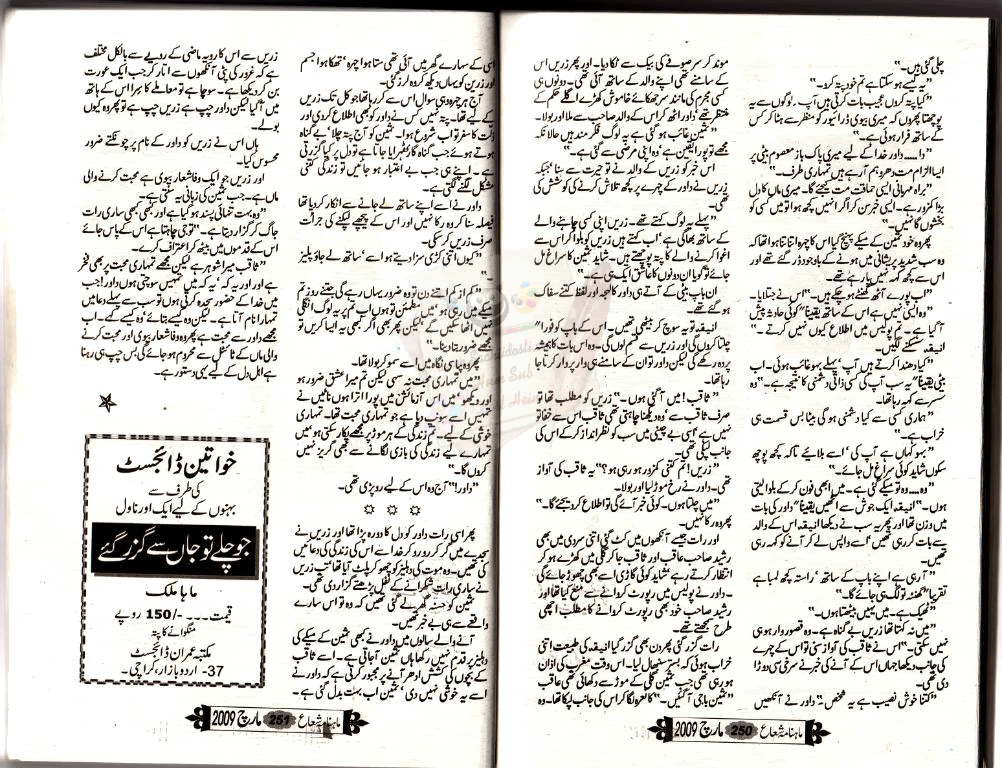 چلی گئی ہیں۔"
"یہ کیسے ہو سکتا ہے تم خود پتہ کرو۔"
"کیا پتہ کروں عجیب بات کرتی ہیں آپ۔ لوگوں سے یہ
پوچھتا پھروں کہ میری بیوی ڈرائیور کو منظر سے ہٹا کر کس
کے ساتھ فرار ہوئی ہے۔"
"دا۔۔۔۔ داور خدا کے لیے میری پاک باز معصوم بیٹی پر
ایسا الزام مت دھرو ہم آ رہے ہیں تمہاری طرف۔"
"براہ مہربانی ایسی حماقت مت کیجئے گا۔ میری ماں کا دل
بڑا کمزور ہے۔ ایسی خبر سن کر اگر انہیں کچھ ہوا تو میں کسی کو
بخشوں گا نہیں۔"
پھر وہ خود ثمین کے میکے پہنچ گیا اس کا چہرہ اتنا تنا ہوا تھا کہ
وہ سب شدید پریشانی میں ہونے کے باوجود ڈر گئے تھے اور
اس سے کچھ کہہ نہیں پا رہے تھے۔
"اب پورے آٹھ گھنٹے ہو چکے ہیں۔" اس نے جتلایا۔
"وہ ایسی نہیں ہے اس کے ساتھ یقیناً" کوئی حادثہ پیش
آ گیا ہے۔ تم پولیس میں اطلاع کیوں نہیں کرتے۔"
انیقہ سسکنے لگیں۔
"کیا دھندا کرتے ہیں آپ، پہلے بہو غائب ہوئی۔ اب
بیٹی یقیناً" یہ سب آپ کی کسی ذاتی دشمنی کا نتیجہ ہے۔" وہ
سسر سے کہہ رہا تھا۔
"ہماری کسی سے کیا دشمنی ہو گی بیٹا بس قسمت ہی
خراب ہے۔"
"بہو کہاں ہے آپ کی، اسے بلائیے تاکہ کچھ پوچھ
سکوں شاید کوئی سراغ مل جائے۔"
"وہ۔۔۔ وہ تو میکے گئی ہے۔ میں ابھی فون کر کے بلوا لیتی
ہوں۔" انیقہ ایک جوش سے اٹھیں یقیناً" داور کی بات
میں وزن تھا اور پھر یہ سب نے دیکھا انیقہ اس کے والد
سے بات کر رہی تھیں، اسے واپس لے کر آنے کو کہہ رہی
تھیں۔
"آ رہی ہے اپنے باپ کے ساتھ، راستہ کچھ لمبا ہے
تقریباً" گھنٹہ تو لگ ہی جائے گا۔"
"ٹھیک ہے۔ میں یہیں بیٹھتا ہوں۔"
"میں نہ کہتا تھا زریں بے گناہ ہے۔ وہ قصوروار ہو ہی
نہیں سکتی۔" اس نے ثاقب کی آواز سنی تو اس کے چہرے
کی جانب دیکھا جہاں اس کے آنے کی خبر نے سرخی سی دوڑا
دی تھی۔
"کتنا خوش نصیب ہے یہ شخص۔" داور نے آنکھیں
موند کر سر صوفے کی بیک سے ٹکا دیا۔ اور پھر زریں اس
کے سامنے تھی اپنے والد کے ساتھ آئی تھی۔ دونوں ہی
کسی مجرم کی مانند سر جھکائے خاموش کھڑے اگلے حکم کے
منتظر تھے، داور اٹھ کر اس کے والد صاحب سے ملا اور بولا۔
"ثمین غائب ہو گئی ہے یہ لوگ فکر مند ہیں حالانکہ
مجھے تو پورا یقین ہے، وہ اپنی مرضی سے گئی ہے۔"
اس خبر کو زریں کے والد نے تو حیرت سے سنا، جبکہ
زریں نے داور کے چہرے پر کچھ تلاش کرنے کی کوشش کی
تھی۔
"پہلے یہ لوگ کہتے تھے۔ زریں اپنی کسی چاہنے والے
کے ساتھ بھاگی ہے، اب کہتے ہیں زریں کو بلوا کر اس سے
اغوا کرنے والے کا پتہ پوچھتے ہیں۔ شاید ثمین کا سراغ مل
جائے تو گویا ان دونوں کا عاشق ایک ہی ہے۔"
ان باپ بیٹی کے آتے ہی داور کا لہجہ اور لفظ کتنے سفاک
ہو گئے تھے۔
انیقہ تو یہ سوچ کر بیٹھی تھیں۔ اس کے باپ کو فوراً"
چلتا کروں گی اور زریں سے نمٹوں گی۔ وہ اس بات کا ہمیشہ
پردہ رکھے گی لیکن داور تو ان کے سامنے ہی وار پر وار کرتا جا
رہا تھا۔
"ثاقب! میں آ گئی ہوں۔" زریں کو مطلب تھا تو
صرف ثاقب سے، وہ دیکھنا چاہتی تھی ثاقب اس سے خفا تو
نہیں ہے، اسی بے چینی میں سب کو نظر انداز کر کے اس کی
جانب لپکی تھی۔
"زریں! تم کتنی کمزور ہو رہی ہو؟" یہ ثاقب کی آواز
تھی۔ داور نے رخ موڑ لیا اور بولا۔
"میں چلتا ہوں۔ کوئی خبر آئے گی تو اطلاع کر دیجئے گا۔"
پھر وہ رکا نہیں۔
اور رات جیسے آنکھوں میں کٹ گئی اتنی سردی میں بھی
رشید صاحب عاقب اور ثاقب جا کر گلی میں کھڑے ہو کر
انتظار کرتے رہے، شاید کوئی گاڑی اسے بھی چھوڑ جائے گی
۔ داور نے پولیس میں رپورٹ کروانے سے منع کیا تھا اور
رشید صاحب خود بھی رپورٹ کروانے کا مطلب اچھی
طرح سمجھتے تھے۔
رات گزر گئی پھر دن بھی گزر گیا انیقہ کی طبیعت اتنی
خراب ہوئی کہ بستر سنبھال لیا۔ اس وقت مغرب کی اذان
ہو رہی تھی جب ثمین گلی کے موڑ سے دکھائی تھی عاقب
"ثمین باجی آ گئیں۔" کا نعرہ لگا کر اس کی جانب لپکا تھا۔ وہ
ماہنامہ شعاع 250 مارچ 2009
اسی کے سہارے گھر میں آئی تھی ستا ہوا چہرہ، تھکا ہوا جسم
اور زریں کو یہاں دیکھ کر وہ لرز گئی۔
آج ہر چہرہ وہی سوال اس سے کر رہا تھا جو کل تک زریں
کے لیے تھا۔ پتہ نہیں کس نے داور کو بھی اطلاع کر دی اور
ذلت کا سفر تو اب شروع ہوا۔ ثمین کو آج پتہ چلا، بے گناہ
ہوتے ہوئے جب گناہ گار ٹھہرایا جاتا ہے تو دل پر کیا گزرتی
ہے۔ اپنے ہی جب بے اعتبار ہو جائیں تو زندگی کتنی
مشکل لگنے لگتی ہے۔
داور نے اسے اپنے ساتھ لے جانے سے انکار کر دیا تھا
فیصلہ سنا کر وہ رکا نہیں اور اس کے پیچھے لپکنے کی جرأت
صرف زریں کر سکی۔
"کیوں اتنی کڑی سزا دیتے ہو اسے، ساتھ لے جاؤ پلیز
۔"
"کم از کم اتنے دن تو وہ ضرور یہاں رہے گی جتنے روز تم
میکے میں رہی ہو میں مطمئن ہوں اب تم پر یہ لوگ انگلی
نہیں اٹھا سکیں گے، لیکن پھر بھی اگر کبھی یہ ایسا کریں تو
مجھے ضرور بتا دینا۔"
پھر وہ چاہتی نگاہ میں اسے سمو کر بولا تھا۔
"میں تمہاری محبت نہ سہی لیکن تم میرا عشق ضرور ہو
اور دیکھو، میں اس آزمائش میں پورا اترا ہوں نا میں نے
تمہیں اسے سونپ دیا ہے جو تمہاری محبت تھا۔ تمہاری
خوشی کے لیے۔ تم زندگی کے ہر موڑ پر مجھے پکار سکتی ہو، میں
تمہارے لیے زندگی کی بازی لگانے سے بھی گریز نہیں
کروں گا۔"
"داور!" آج وہ اس کے لیے رو پڑی تھی۔
☼ ☼ ☼
پھر اسی رات داور کو دل کا دورہ پڑا تھا اور زریں نے
سجدے میں گر کر رو رو کر خدا سے اس کی زندگی کی دعائیں
کی تھیں۔ وہ موت کی دہلیز کو چھو کر پلٹ آیا تھا، تب زریں
نے ساری رات شکرانے کے نفل پڑھتے گزار دی تھی۔
ثمین کو حسنہ گھر لے گئی تھیں کہ وہ تو اس سارے
واقعے سے ہی بے خبر تھیں۔
آنے والے سالوں میں داور نے کبھی ثمین کے میکے کی
دہلیز پر قدم نہیں رکھا ہاں ثمین آ جاتی ہے۔ اسے ثاقب
کے بچوں کی کشش ادھر آنے پر مجبور کرتی ہے کہ داور نے
اسے یہ خوشی نہیں دی، ثمین اب بہت بدل گئی ہے۔
زریں سے اس کا رویہ ماضی کے رویے سے بالکل مختلف
ہے کہ غرور کی پٹی آنکھوں سے اتار کر جب ایک عورت
بن کر دیکھا ہے۔ سوچا ہے تو معاملے کا سرا اس کے ہاتھ
میں آ گیا لیکن داور چپ ہے زریں چپ ہے تو پھر وہ کیوں
بولے۔
ہاں اس نے زریں کو داور کے نام پر چونکتے ضرور
محسوس کیا۔
اور زریں جو ایک وفا شعار بیوی ہے محبت کرنے والی
ماں ہے۔ جب ثمین کی زبانی یہ سنتی ہے۔
"وہ بہت تنہائی پسند ہو گیا ہے اور کبھی کبھی ساری رات
جاگ کر گزار دیتا ہے۔" تو جی چاہتا ہے اس کے پاس جائے
اس کے قدموں میں بیٹھ کر اعتراف کرے۔
"ثاقب میرا شوہر ہے لیکن مجھے تمہاری محبت پر بھی فخر
ہے اور اور یہ کہ، یہ کہ میں تمہیں سوچتی ہوں داور! جب
میں خدا کے حضور سجدہ کرتی ہوں تو سب سے پہلے دعا میں
تمہارا نام آتا ہے۔ لیکن وہ کیسے بتائے، وہ کیسے کہے۔ اب
مجھے داور سے محبت ہے پھر وہ وفا شعار بیوی اور محبت کرنے
والی ماں کے ٹائٹل سے محروم ہو جائے گی بس چپ ہی رہنا
ہے اہل دل کے لیے یہی دستور ہے۔
خواتین ڈائجسٹ
کی طرف سے
بہنوں کے لیے ایک اور ناول
جو چلے تو جاں سے گزر گئے
ماہا ملک
قیمت۔۔۔ -/150 روپے
منگوانے کا پتہ
مکتبہ عمران ڈائجسٹ
37- اردو بازار، کراچی۔
ماہنامہ شعاع 251 مارچ 2009